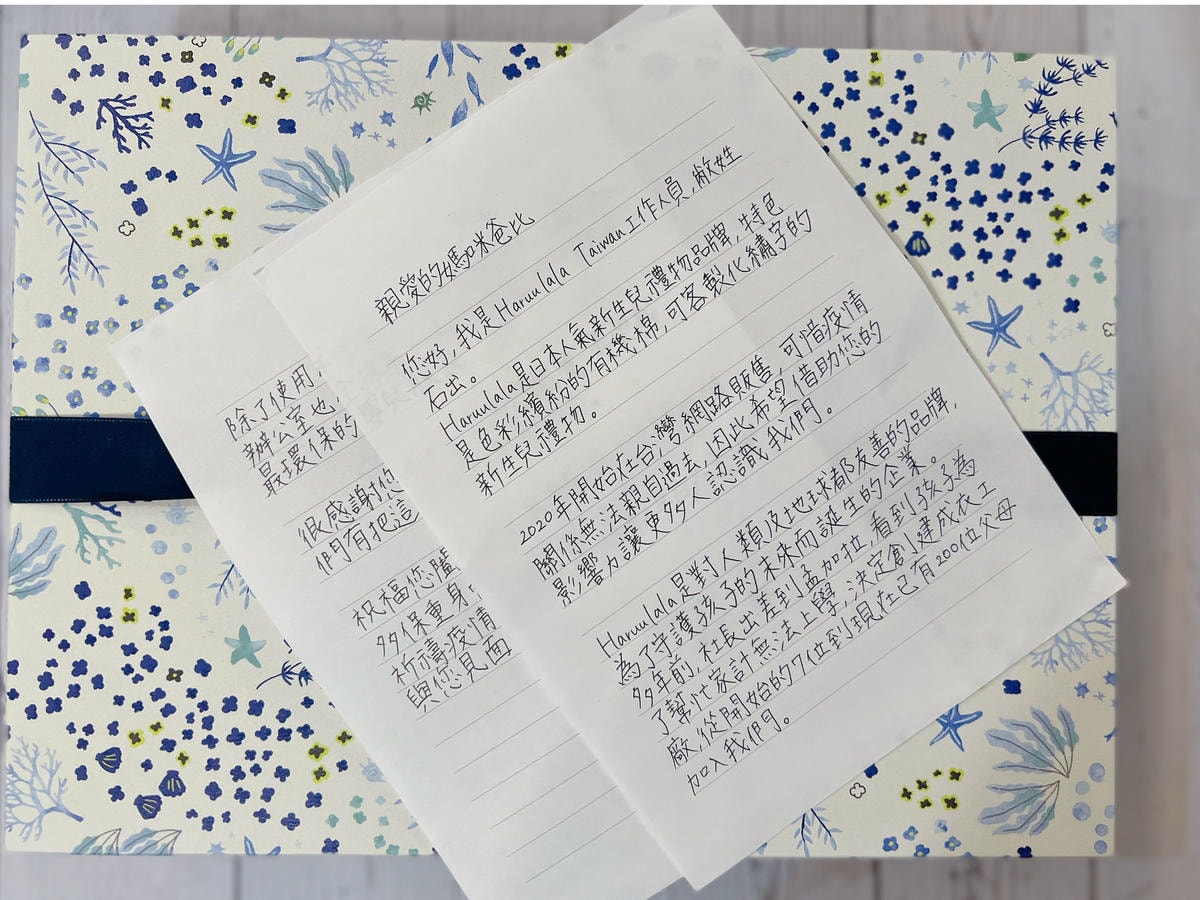 親愛的媽咪爸比
您好，我是Haruulala Taiwan工作人員，敝姓
石出。
Haruulala是日本人氣新生兒禮物品牌，特色
是色彩繽紛的有機棉，可客製化繡字的
新生兒禮物。
2020年開始在台灣網路販售，可惜疫情
關係無法親自過去，因此希望借助您的
影響力讓更多人認識我們。
Haruulala是對人類及地球都友善的品牌，
為了守護孩子的未來而誕生的企業。
多年前，社長出差到孟加拉，看到孩子為
了幫忙家計無法上學，決定創建成衣工
廠，從開始的7位到現在已有200位父母
加入我們。
除了使用，
辦公室也
最環保的
很感謝您
們有把這
祝福您闔
多保重身
祈禱疫情
與您見面